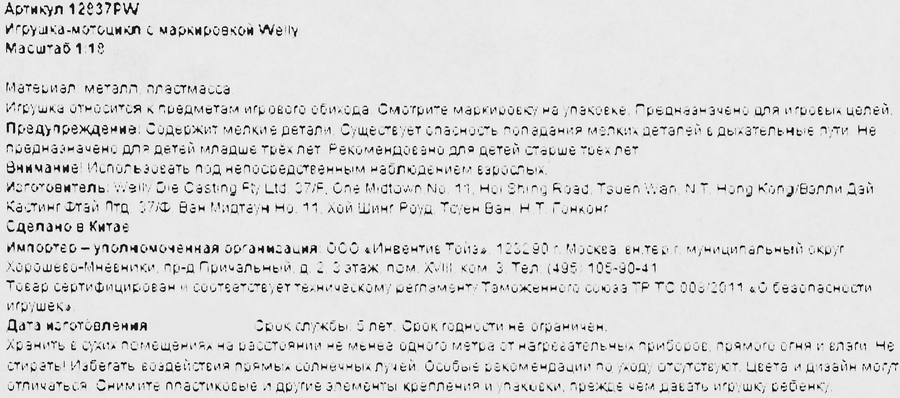 Артикул 12837PW
Игрушка-мотоцикл с маркировкой Welly
Масштаб 1:18
Материал: металл, пластмасса.
Игрушка относится к предметам игрового обихода. Смотрите маркировку на упаковке. Предназначено для игровых целей.
Предупреждение! Содержит мелкие детали. Существует опасность попадания мелких деталей в дыхательные пути. Не
предназначено для детей младше трёх лет. Рекомендовано для детей старше трёх лет.
Внимание! Использовать под непосредственным наблюдением взрослых.
Изготовитель: Welly Die Casting Fty Ltd, 37/F, One Midtown No. 11, Hoi Shing Road, Tsuen Wan, N.T. Hong Kong/Вэлли Дай
Кастинг Фтай Лтд, 37/Ф, Ван Мидтаун Но. 11, Хой Шинг Роуд, Тсуен Ван, Н.Т. Гонконг
Сделано в Китае
Импортер – уполномоченная организация: ООО «Инвентив Тойз», 123290 г. Москва, вн.тер.г. муниципальный округ
Хорошёво-Мневники, пр-д Причальный, д. 2, 3 этаж, пом. XVIII, ком. 3. Тел. (495) 105-90-41
Товар сертифицирован и соответствует техническому регламенту Таможенного союза ТР ТС 008/2011 «О безопасности
игрушек».
Дата изготовления Срок службы: 5 лет. Срок годности не ограничен.
Хранить в сухих помещениях на расстоянии не менее одного метра от нагревательных приборов, прямого огня и влаги. Не
стирать! Избегать воздействия прямых солнечных лучей. Особые рекомендации по уходу отсутствуют. Цвета и дизайн могут
отличаться. Снимите пластиковые и другие элементы крепления и упаковки, прежде чем давать игрушку ребенку.